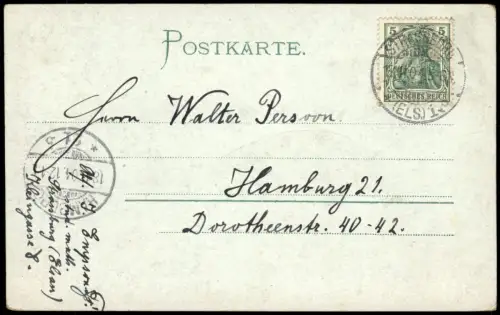 POSTKARTE.
5 5
DEUTSCHES REICH
(ELS)
Herrn Walter Persoon.
Hamburg 21.
Dorotheenstr. 40-42.
stud. math.
Strassburg (Elsass)